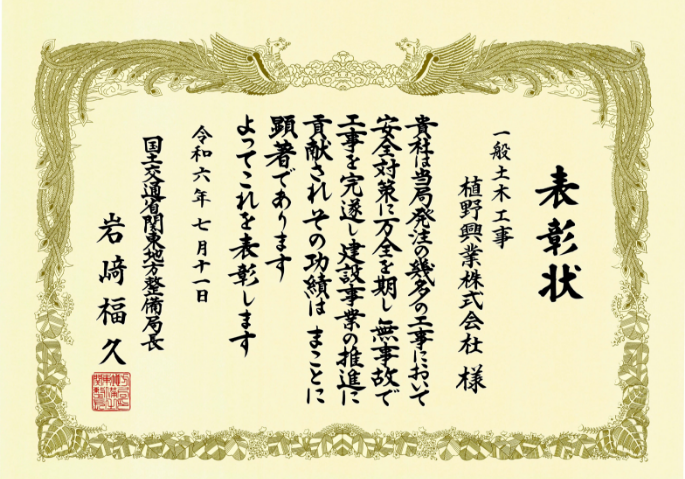 表彰状
一般土木工事
植野興業株式会社 様
貴社は当局発注の幾多の工事において
安全対策に万全を期し 無事故で
工事を完遂し建設事業の推進に
貢献され その功績は まことに
顕著であります
よってこれを表彰します
令和六年 七月十一日
国土交通省関東地方整備局長
岩﨑福久